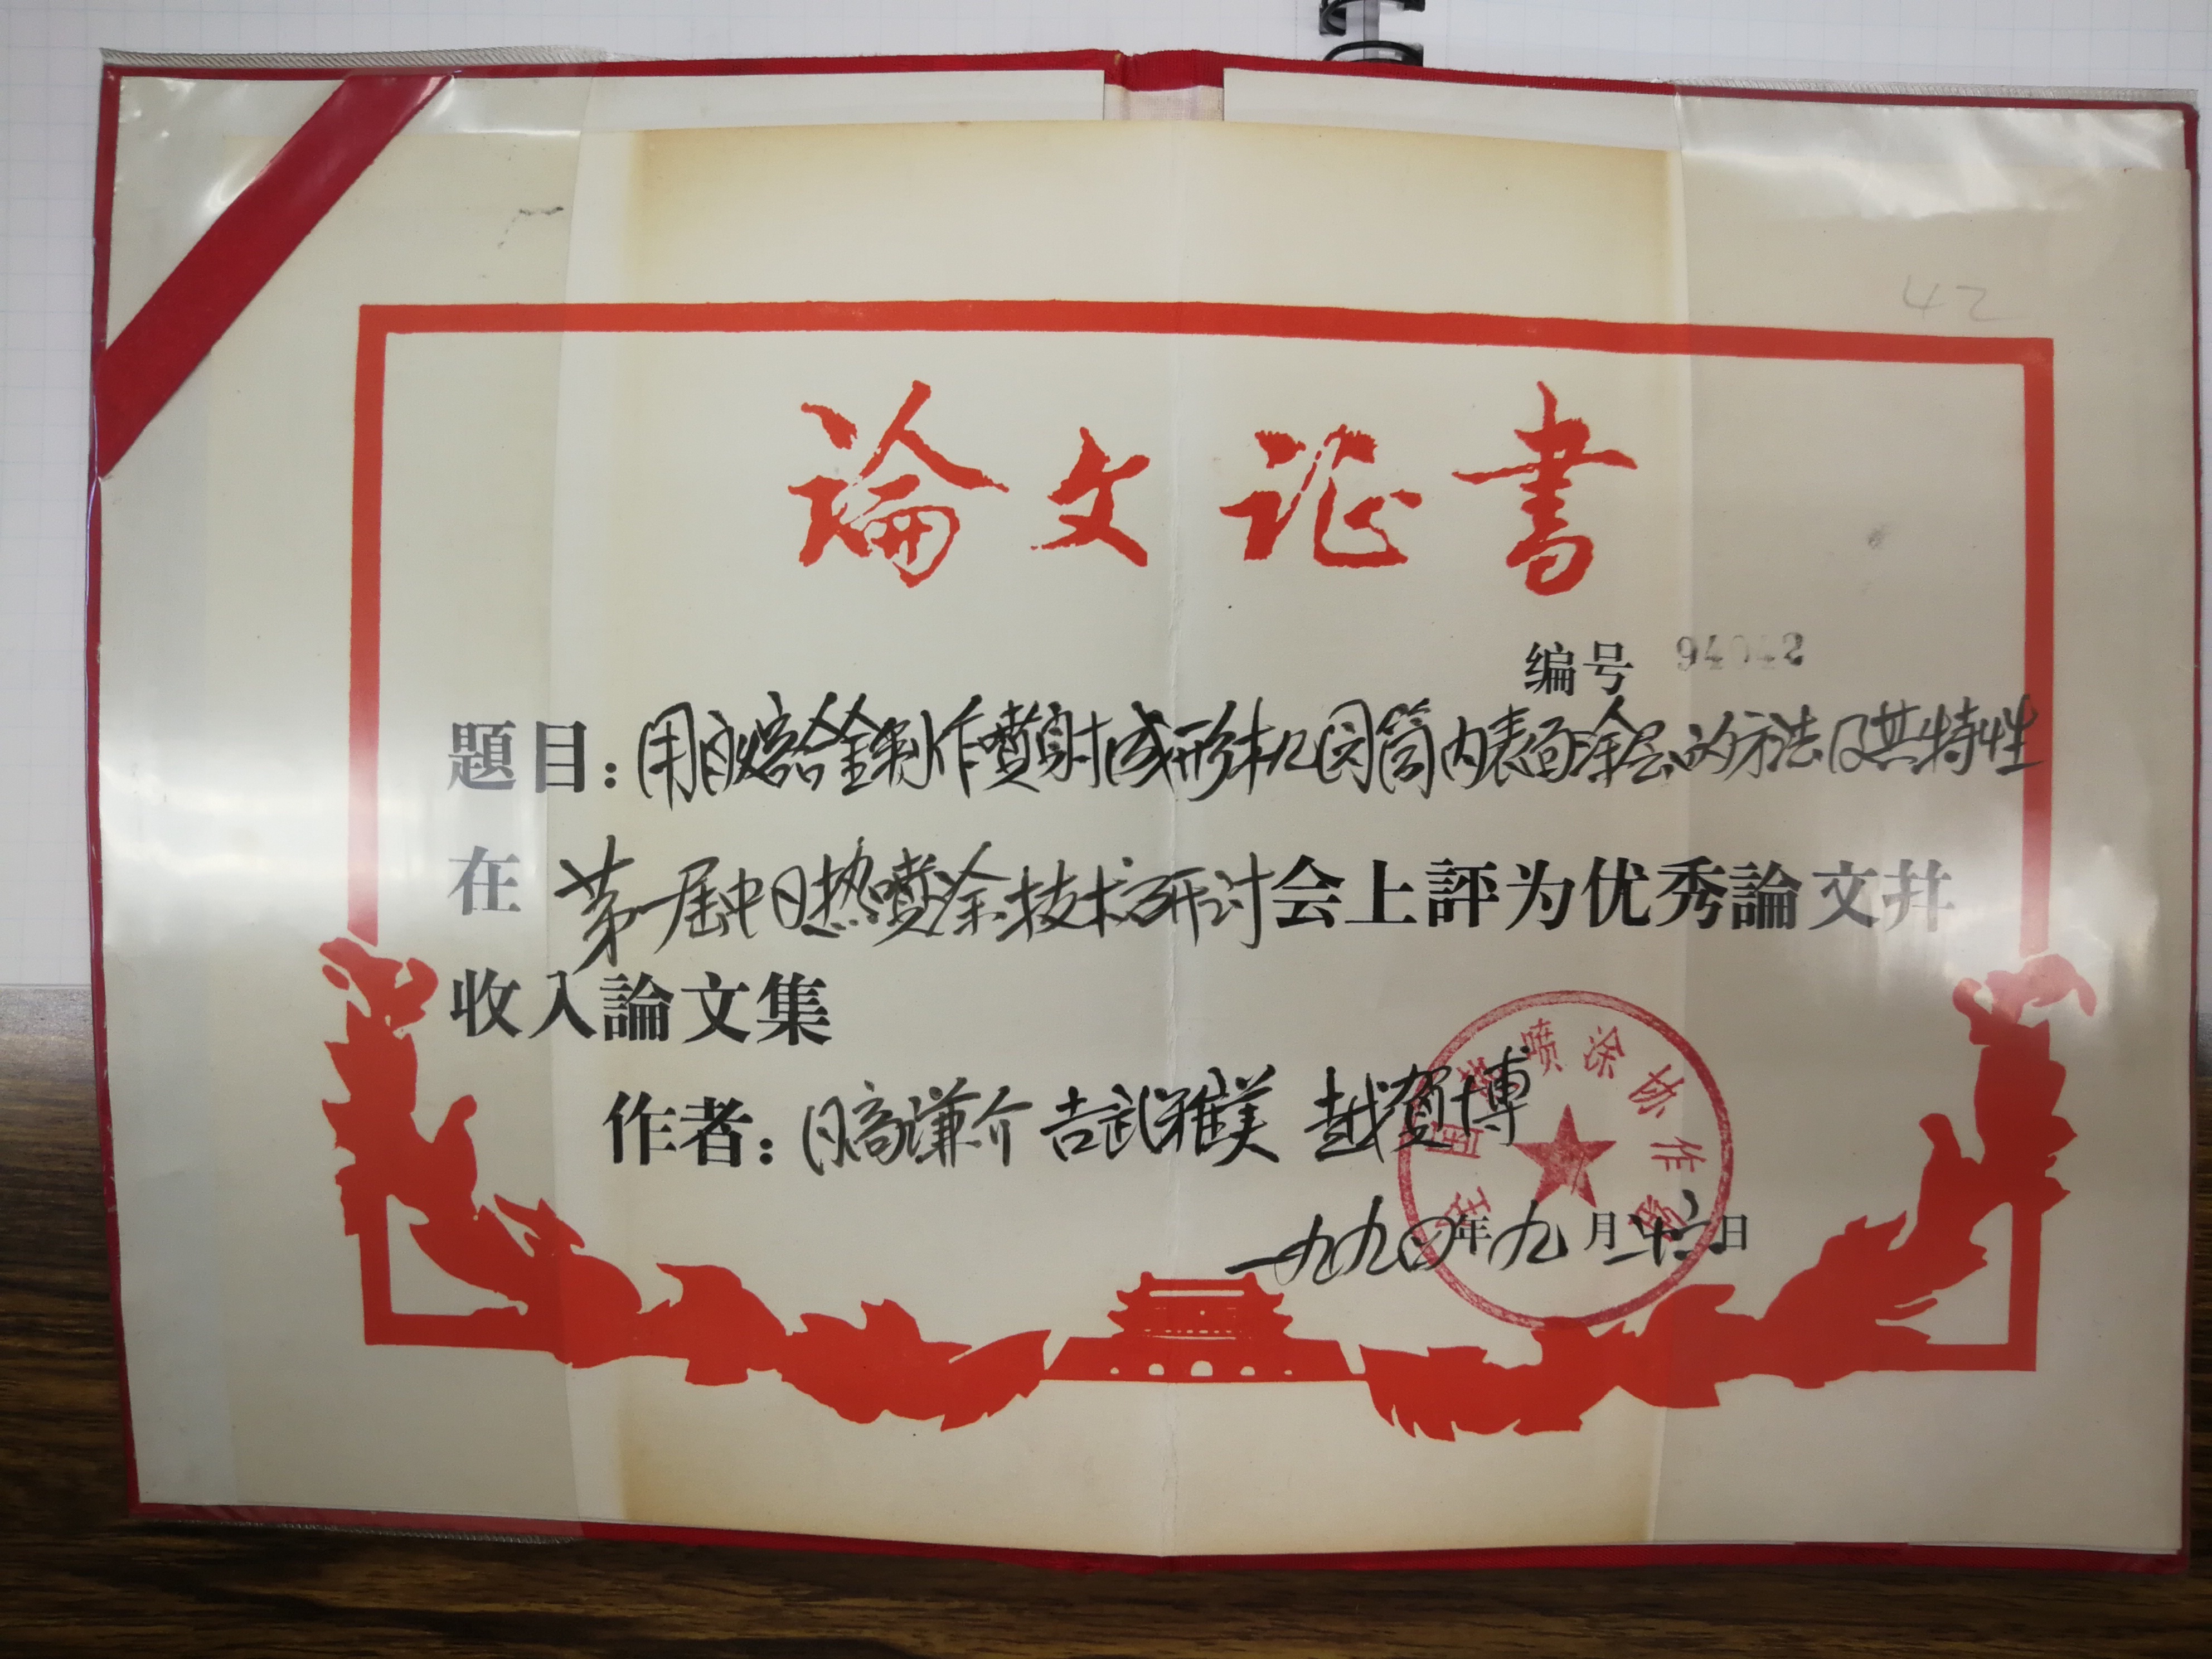 42
論文证書
编号 94042
題目:用自熔合金制作喷射成形机园筒内表面涂层的方法及其特性
在 第一届中日热喷涂技术研讨会上評为优秀論文并
收入論文集
作者:日高谦介 吉武雅美 越賀博
全国热喷涂协作组
一九九〇年九月二十六日